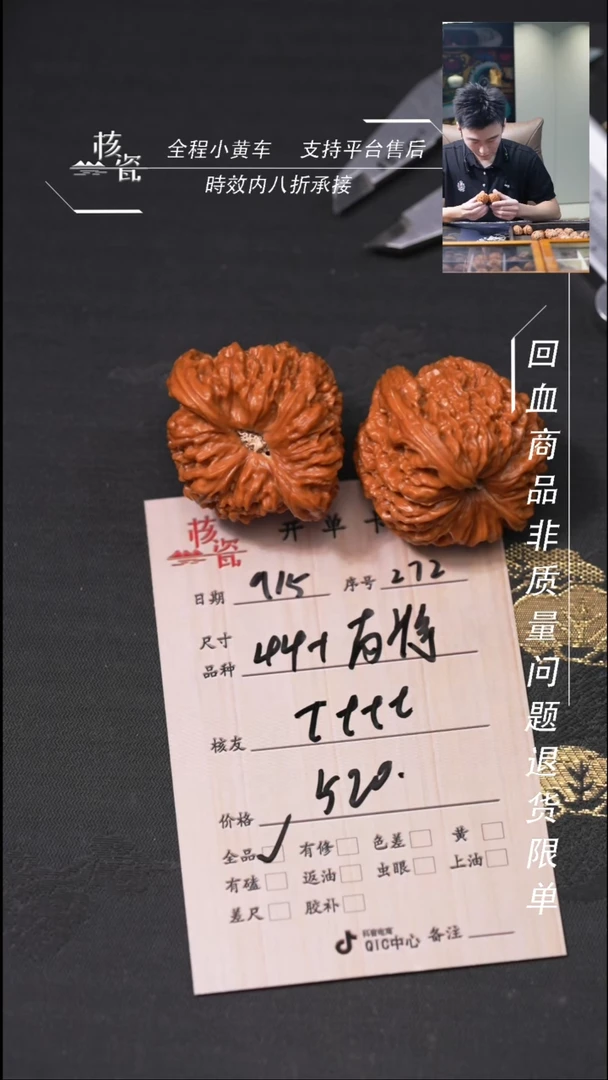 核瓷
全程小黄车 支持平台售后
時效内八折承接
回血商品非质量问题退货限单
核瓷
开单卡
日期 9/5 序号 272
尺寸
品种 44+
核友 Tttt
价格 520.
全品 有修 色差 黄
有磕 返油 虫眼 上油
差尺 胶补
抖音电商
QIC中心 备注